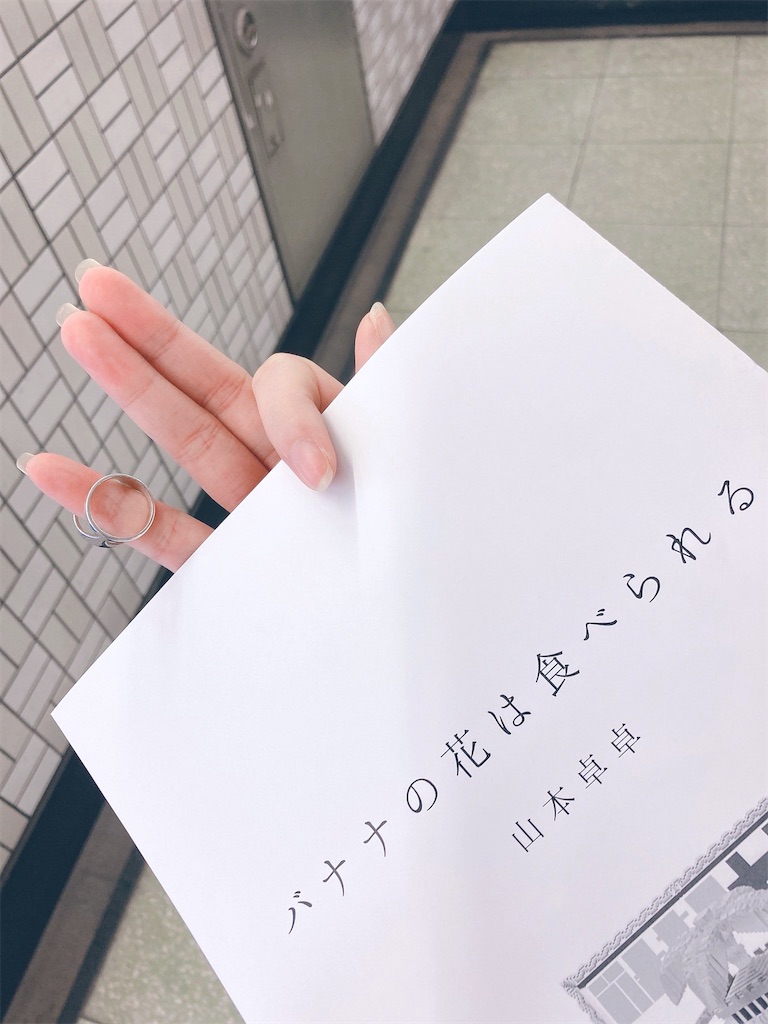 バナナの花は食べられる
山本卓卓